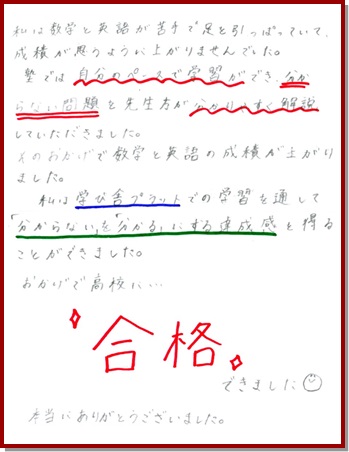 私は数学と英語が苦手で足を引っぱっていて、
成績が思うように上がりませんでした。
塾では自分のペースで学習ができ、分か
らない問題を先生方が分かりやすく解説
していただきました。
そのおかげで数学と英語の成績が上がり
ました。
私は学び舎プラットでの学習を通して
「分からない」を「分かる」にする達成感を得る
ことができました。
おかげで高校に…
合格
できました
本当にありがとうございました。